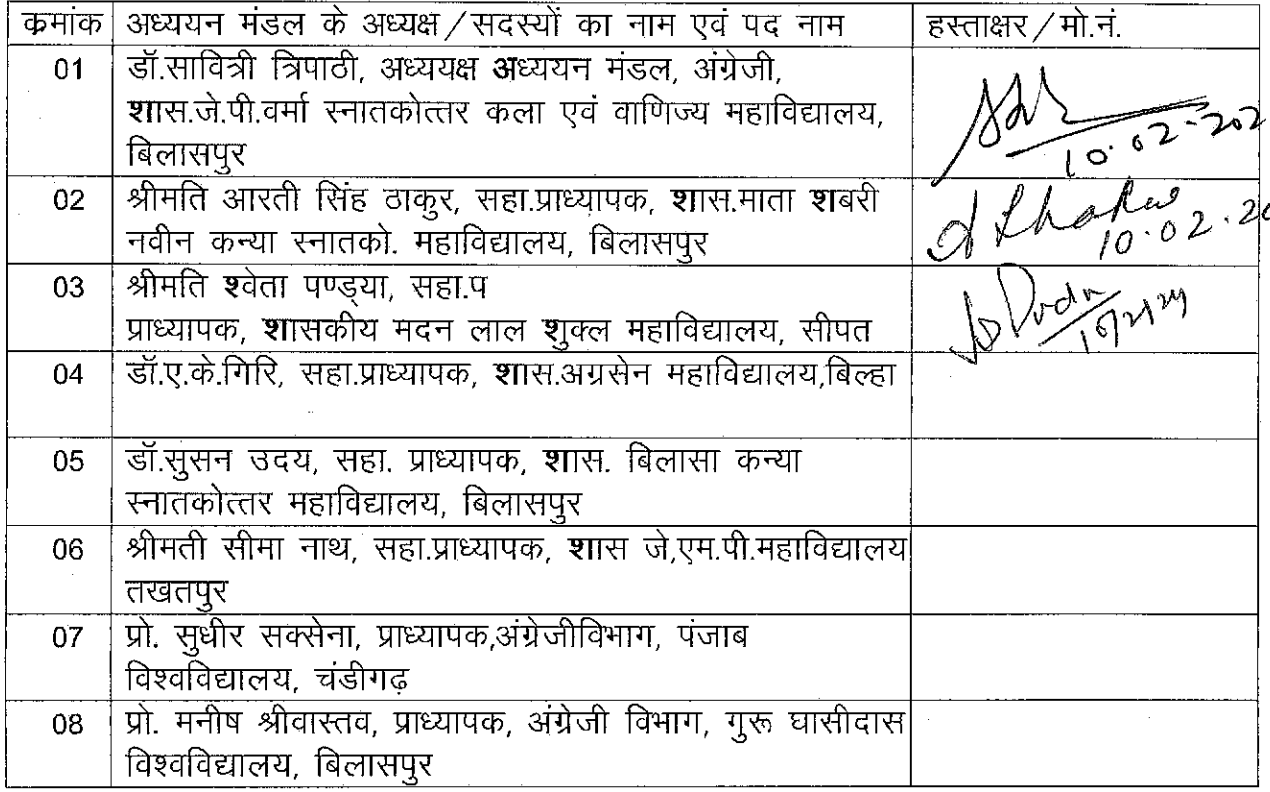 क्रमांक अध्ययन मंडल के अध्यक्ष/सदस्यों का नाम एवं पद नाम हस्ताक्षर/मो.नं.
01 डॉ.सावित्री त्रिपाठी, अध्ययक्ष अध्ययन मंडल, अंग्रेजी,
शास.जे.पी.वर्मा स्नातकोत्तर कला एवं वाणिज्य महाविद्यालय,
बिलासपुर
10.02-202
02 श्रीमति आरती सिंह ठाकुर, सहा.प्राध्यापक, शास.माता शबरी
नवीन कन्या स्नातको. महाविद्यालय, बिलासपुर
10.02.20
03 श्रीमति श्वेता पण्ड्या, सहा.प
प्राध्यापक, शासकीय मदन लाल शुक्ल महाविद्यालय, सीपत
04 डॉ.ए.के.गिरि, सहा.प्राध्यापक, शास.अग्रसेन महाविद्यालय,बिल्हा
05 डॉ.सुसन उदय, सहा. प्राध्यापक, शास. बिलासा कन्या
स्नातकोत्तर महाविद्यालय, बिलासपुर
06 श्रीमती सीमा नाथ, सहा.प्राध्यापक, शास जे,एम.पी.महाविद्यालय
तखतपुर
07 प्रो. सुधीर सक्सेना, प्राध्यापक,अंग्रेजीविभाग, पंजाब
विश्वविद्यालय, चंडीगढ़
08 प्रो. मनीष श्रीवास्तव, प्राध्यापक, अंग्रेजी विभाग, गुरू घासीदास
विश्वविद्यालय, बिलासपुर